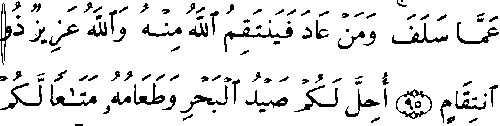 عَمَّا سَلَفَ ۚ وَمَنْ عَادَ فَيَنتَقِمُ ٱللَّهُ مِنْهُ ۗ وَٱللَّهُ عَزِيزٌ ذُو
ٱنتِقَامٍ ﴿٩٥﴾ أُحِلَّ لَكُمْ صَيْدُ ٱلْبَحْرِ وَطَعَامُهُۥ مَتَـٰعًا لَّكُمْ